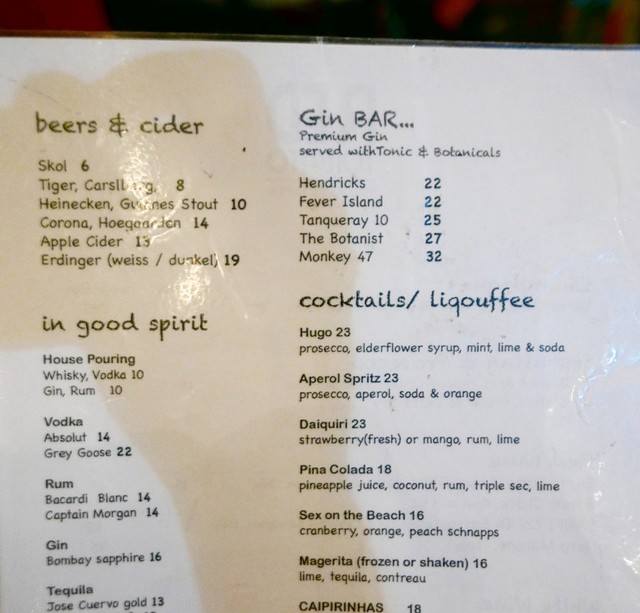 beers & cider
Skol 6
Tiger, Carslberg, 8
Heinecken, Guinnes Stout 10
Corona, Hoegaarden 14
Apple Cider 13
Erdinger (weiss / dunkel) 19
in good spirit
House Pouring
Whisky, Vodka 10
Gin, Rum 10
Vodka
Absolut 14
Grey Goose 22
Rum
Bacardi Blanc 14
Captain Morgan 14
Gin
Bombay sapphire 16
Tequila
Jose Cuervo gold 13
Gin BAR...
Premium Gin
served withTonic & Botanicals
Hendricks 22
Fever Island 22
Tanqueray 10 25
The Botanist 27
Monkey 47 32
cocktails/ liqouffee
Hugo 23
prosecco, elderflower syrup, mint, lime & soda
Aperol Spritz 23
prosecco, aperol, soda & orange
Daiquiri 23
strawberry(fresh) or mango, rum, lime
Pina Colada 18
pineapple juice, coconut, rum, triple sec, lime
Sex on the Beach 16
cranberry, orange, peach schnapps
Magerita (frozen or shaken) 16
lime, tequila, contreau
CAIPIRINHAS 18